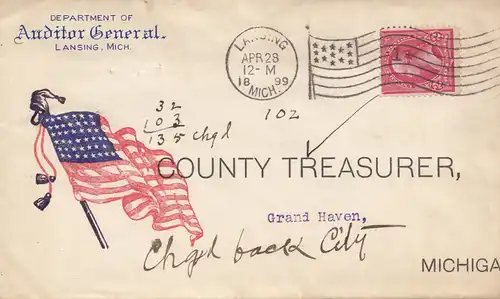 DEPARTMENT OF
Auditor General.
LANSING, MICH.
LANSING
APR 28
12-M
18 99
MICH.
32
103
135 chgd
102
COUNTY TREASURER,
Grand Haven,
Chgd back City
MICHIGA